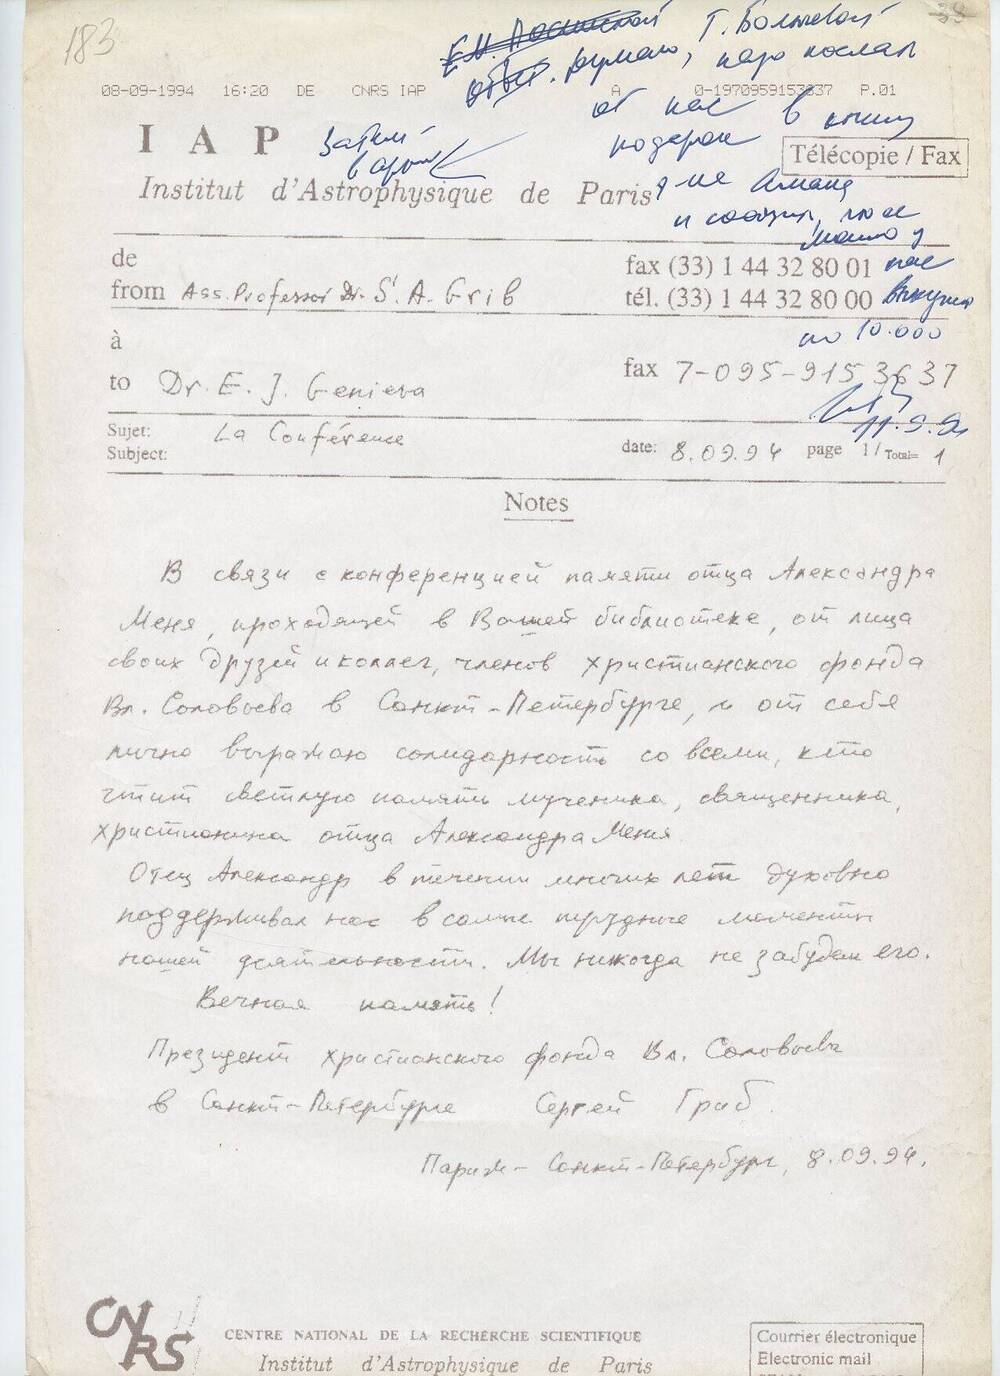 183
39
Т. Большовой
Думаю, надо послать
08-09-1994 16:20 DE CNRS IAP A 0-1970959153037 P.01
от нас в
подарок
I A P
Затем
в архив
Télécopie / Fax
Institut d'Astrophysique de Paris
и сообщи,
можно у
de
fax (33) 1 44 32 80 01 нас
from Ass. Professor Dr. S. A. Grib
tél. (33) 1 44 32 80 00
по 10.000
à
to Dr. E. J. Genieva
fax 7-095-915 36 37
11.9.94
Sujet: La Conférence
Subject:
date: 8.09.94 page 1 / Total= 1
Notes
В связи с конференцией памяти отца Александра
Меня, проходящей в Вашей библиотеке, от лица
своих друзей и коллег, членов христианского фонда
Вл. Соловьева в Санкт-Петербурге, и от себя
лично выражаю солидарность со всеми, кто
чтит светлую память мученика, священника,
христианина отца Александра Меня.
Отец Александр в течении многих лет духовно
поддерживал нас в самые трудные моменты
нашей деятельности. Мы никогда не забудем его.
Вечная память!
Президент христианского фонда Вл. Соловьева
в Санкт-Петербурге Сергей Гриб.
Париж - Санкт-Петербург, 8.09.94.
CNRS
CENTRE NATIONAL DE LA RECHERCHE SCIENTIFIQUE
Institut d'Astrophysique de Paris
Courrier électronique
Electronic mail